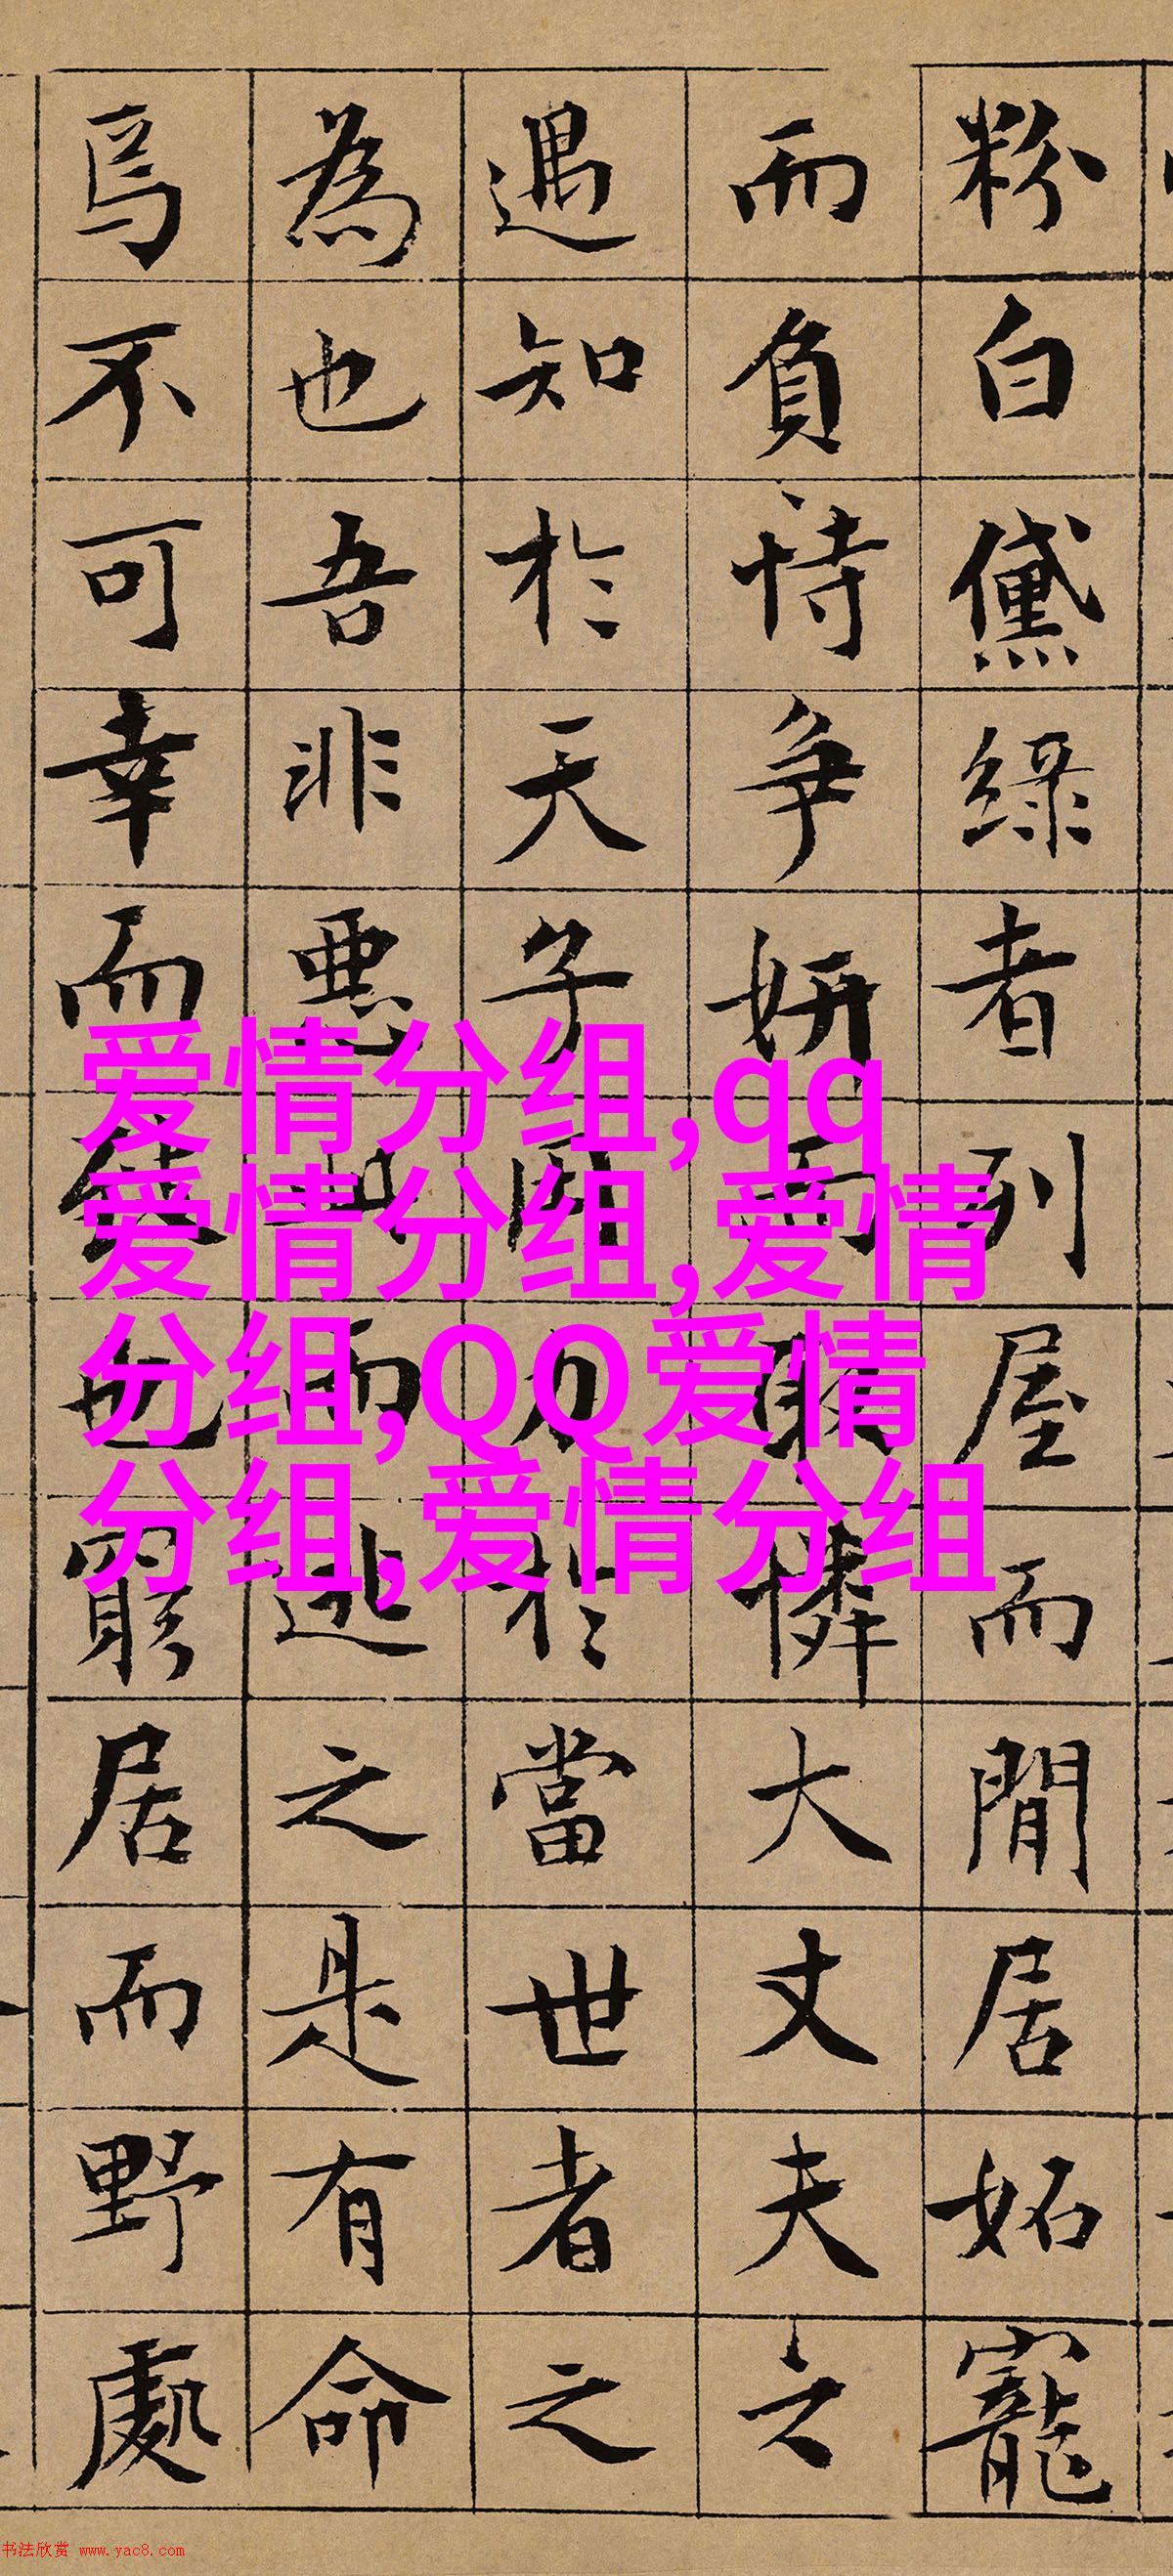 粉白黛緑者列屋而閒居妬寵
而負恃爭妍而取憐大丈夫之
遇知於天子用力於當世者之
為也吾非惡此而逃之是有命
焉不可幸而致也窮居而野處
爱情分组,qq
爱情分组,爱情
分组,QQ爱情
分组,爱情分组
书法欣赏 www.yac8.com